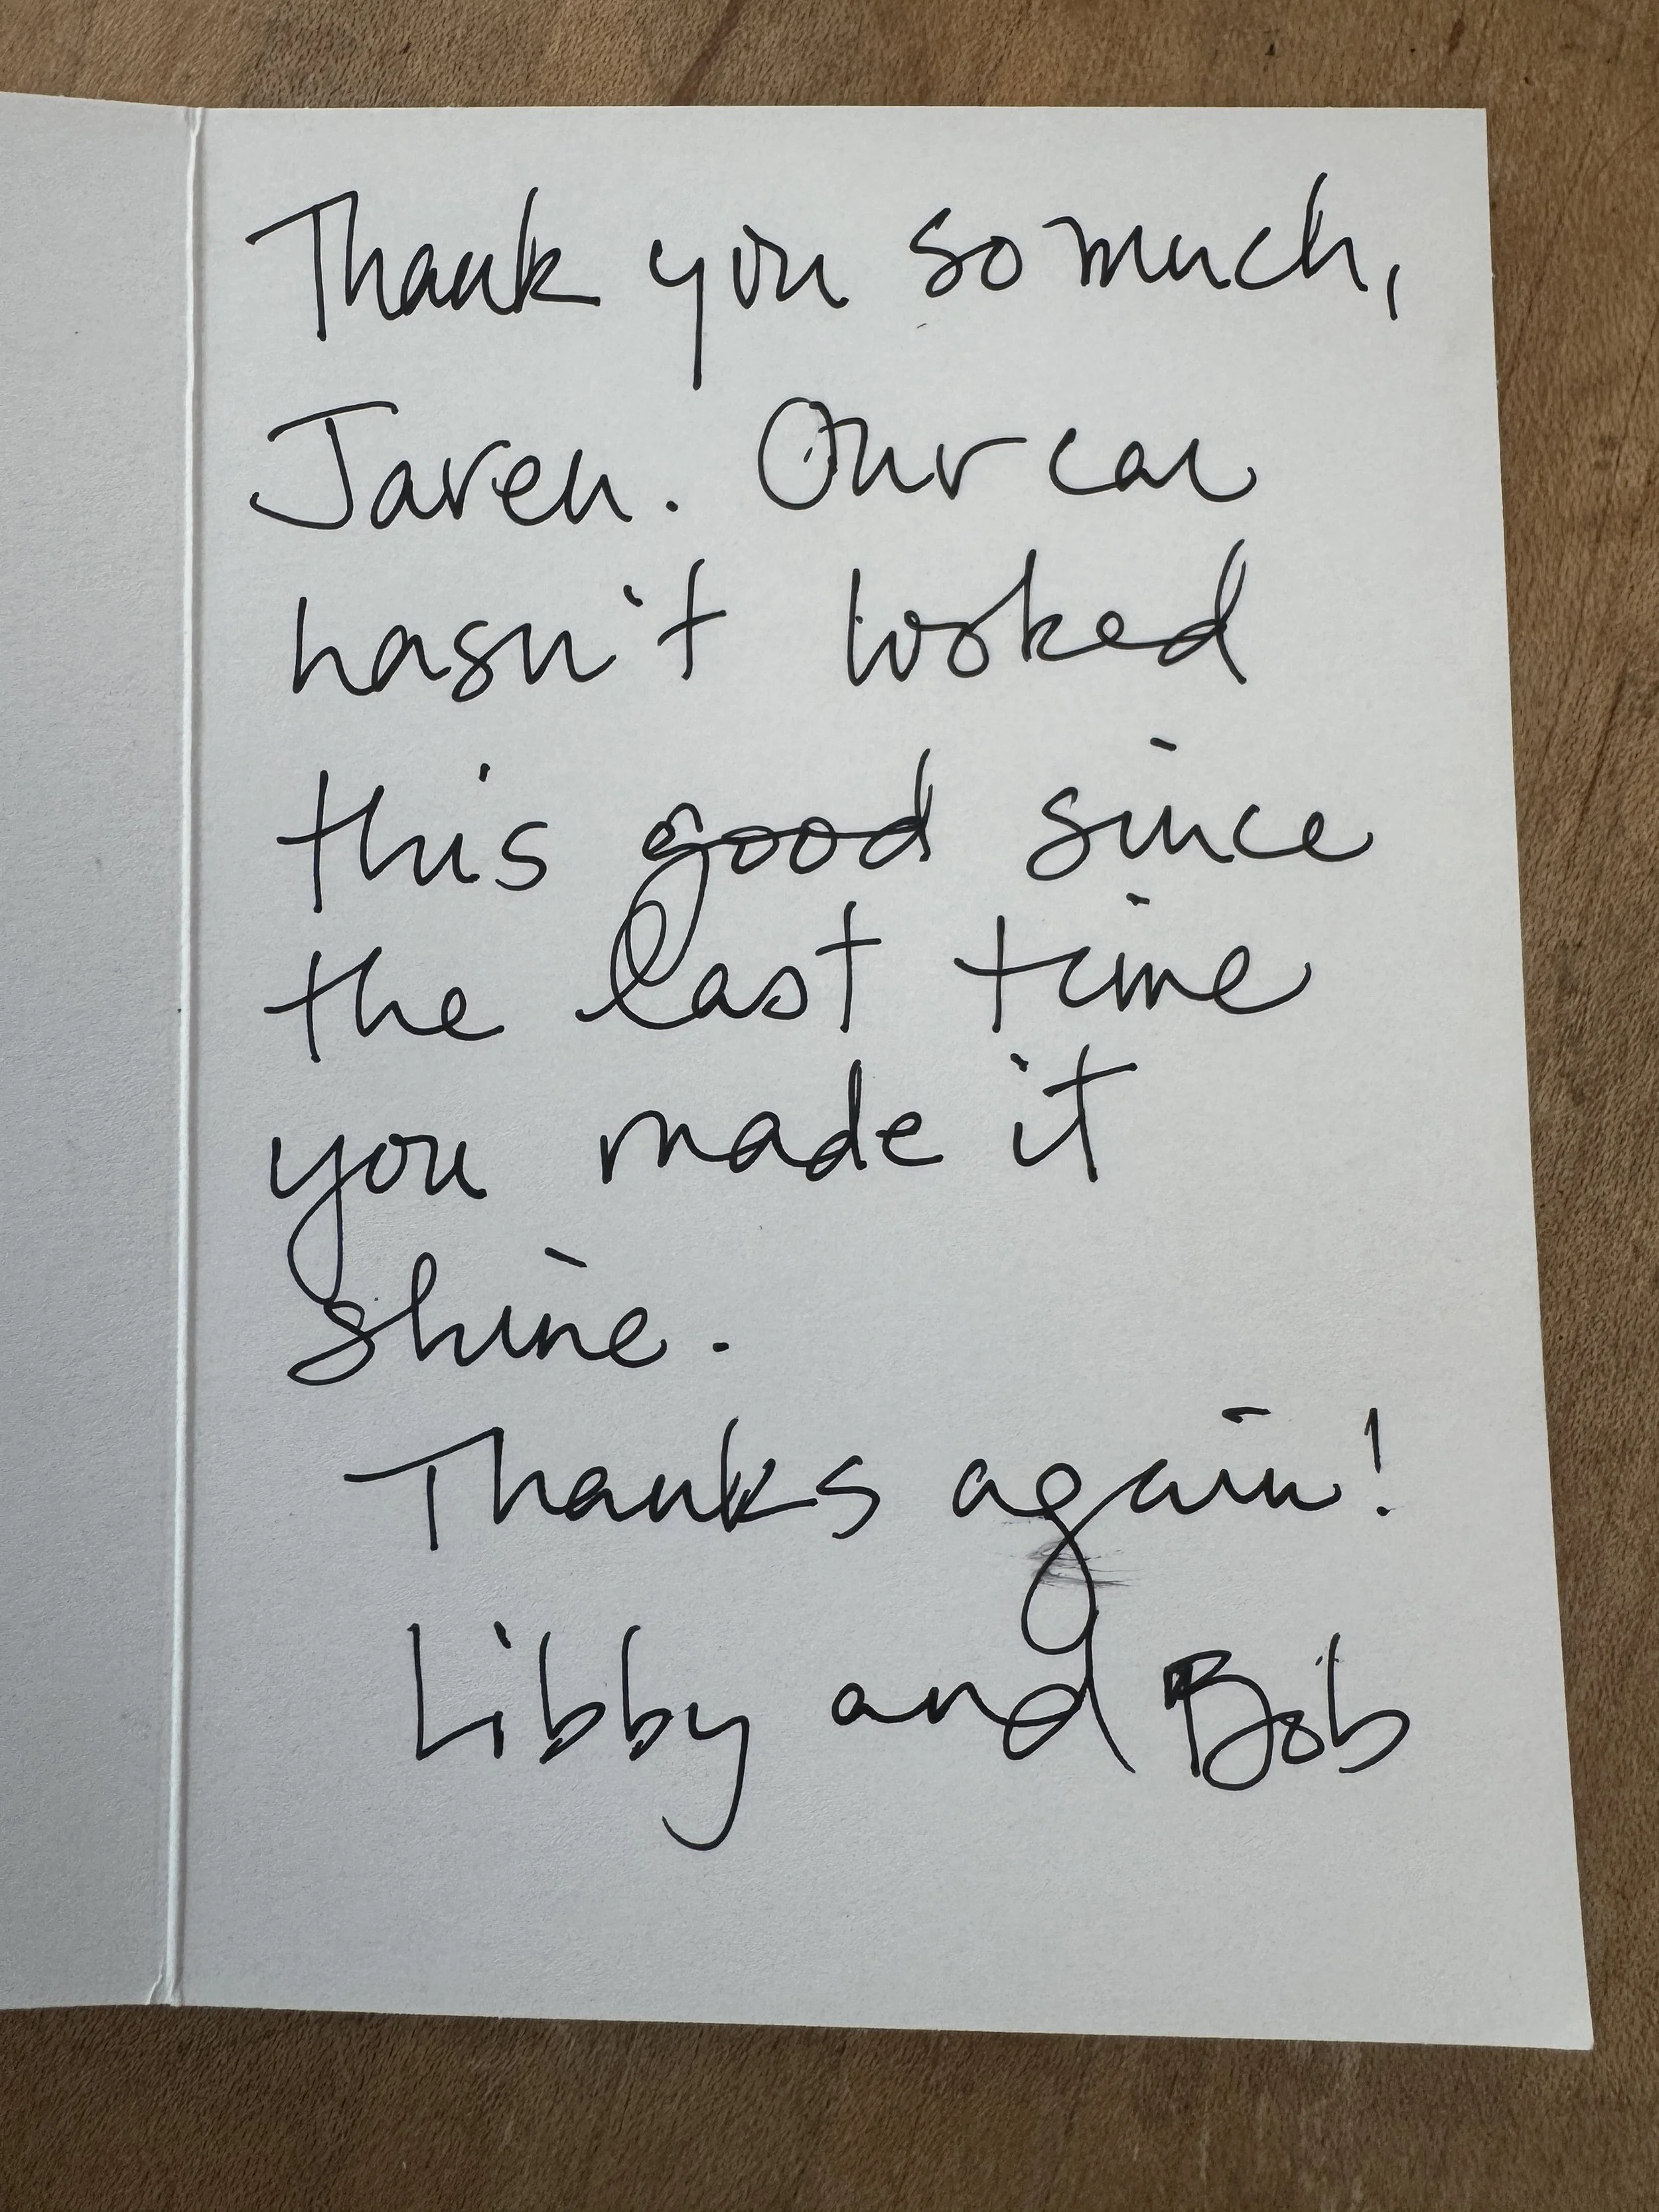 Thank you so much,
Jaren. Our car
hasn't looked
this good since
the last time
you made it
shine.
Thanks again!
Libby and Bob